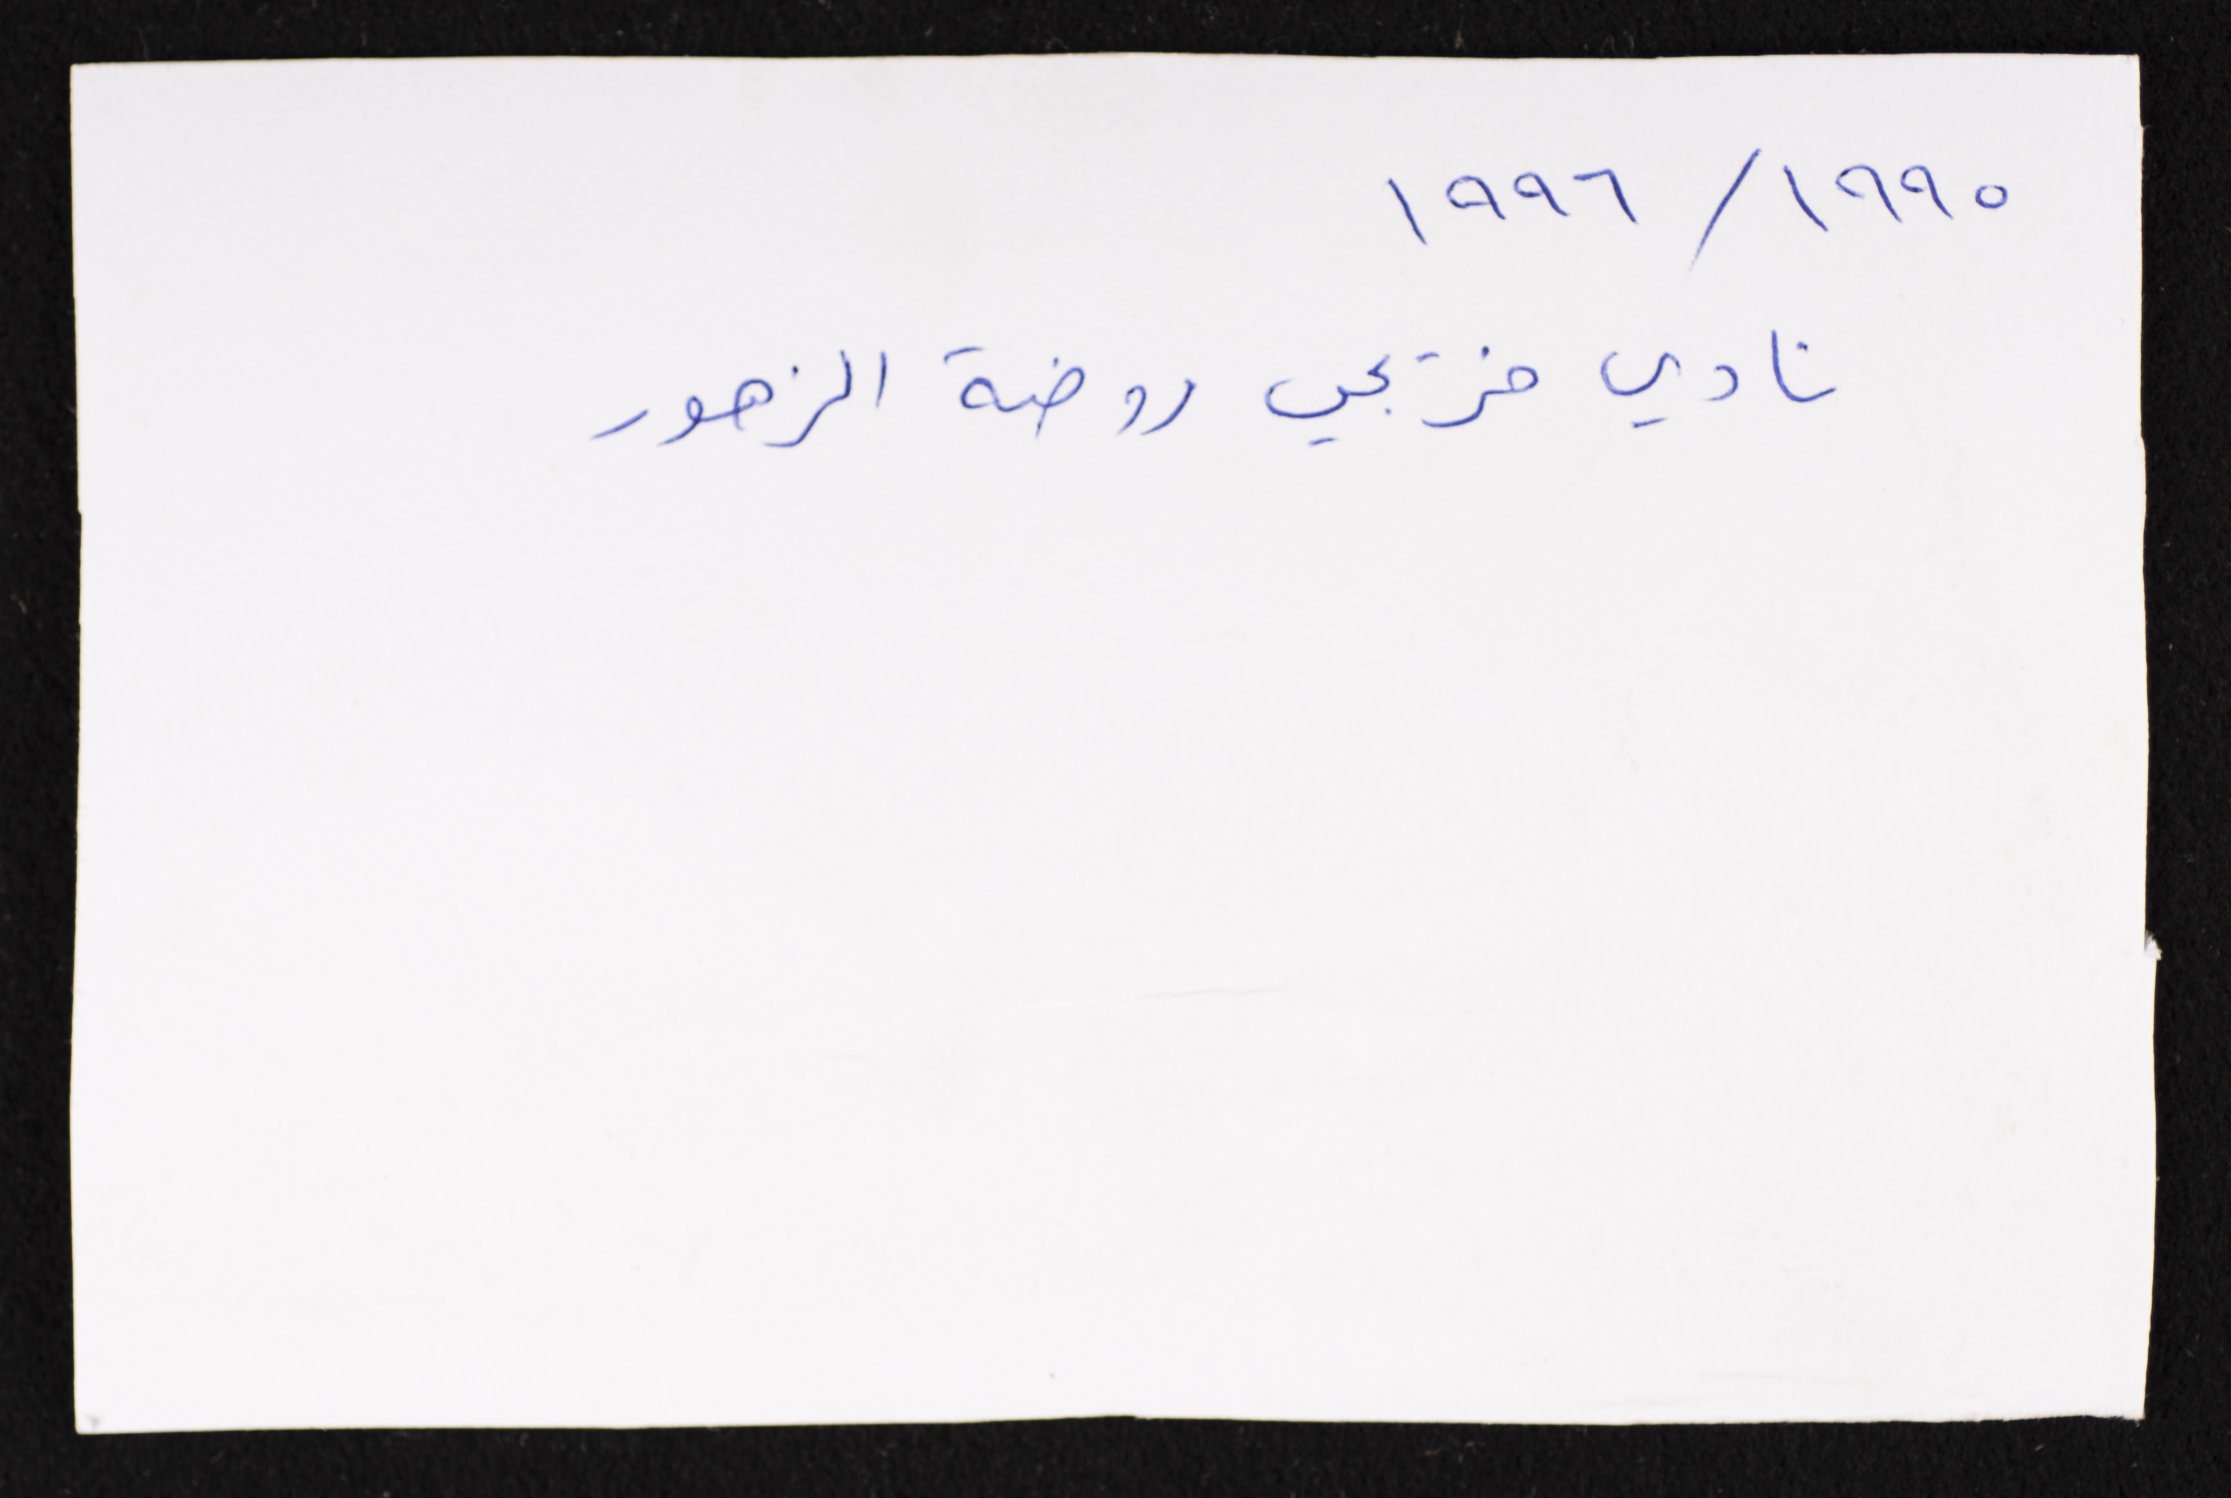 ١٩٩٠/ ١٩٩٦
نادي خزيجي روضة الزهور